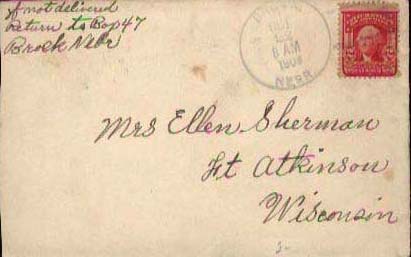 If not delivered
return to Box 47
Brock Nebr
8 AM
NEBR.
Mrs Ellen Sherman
Ft Atkinson
Wisconsin